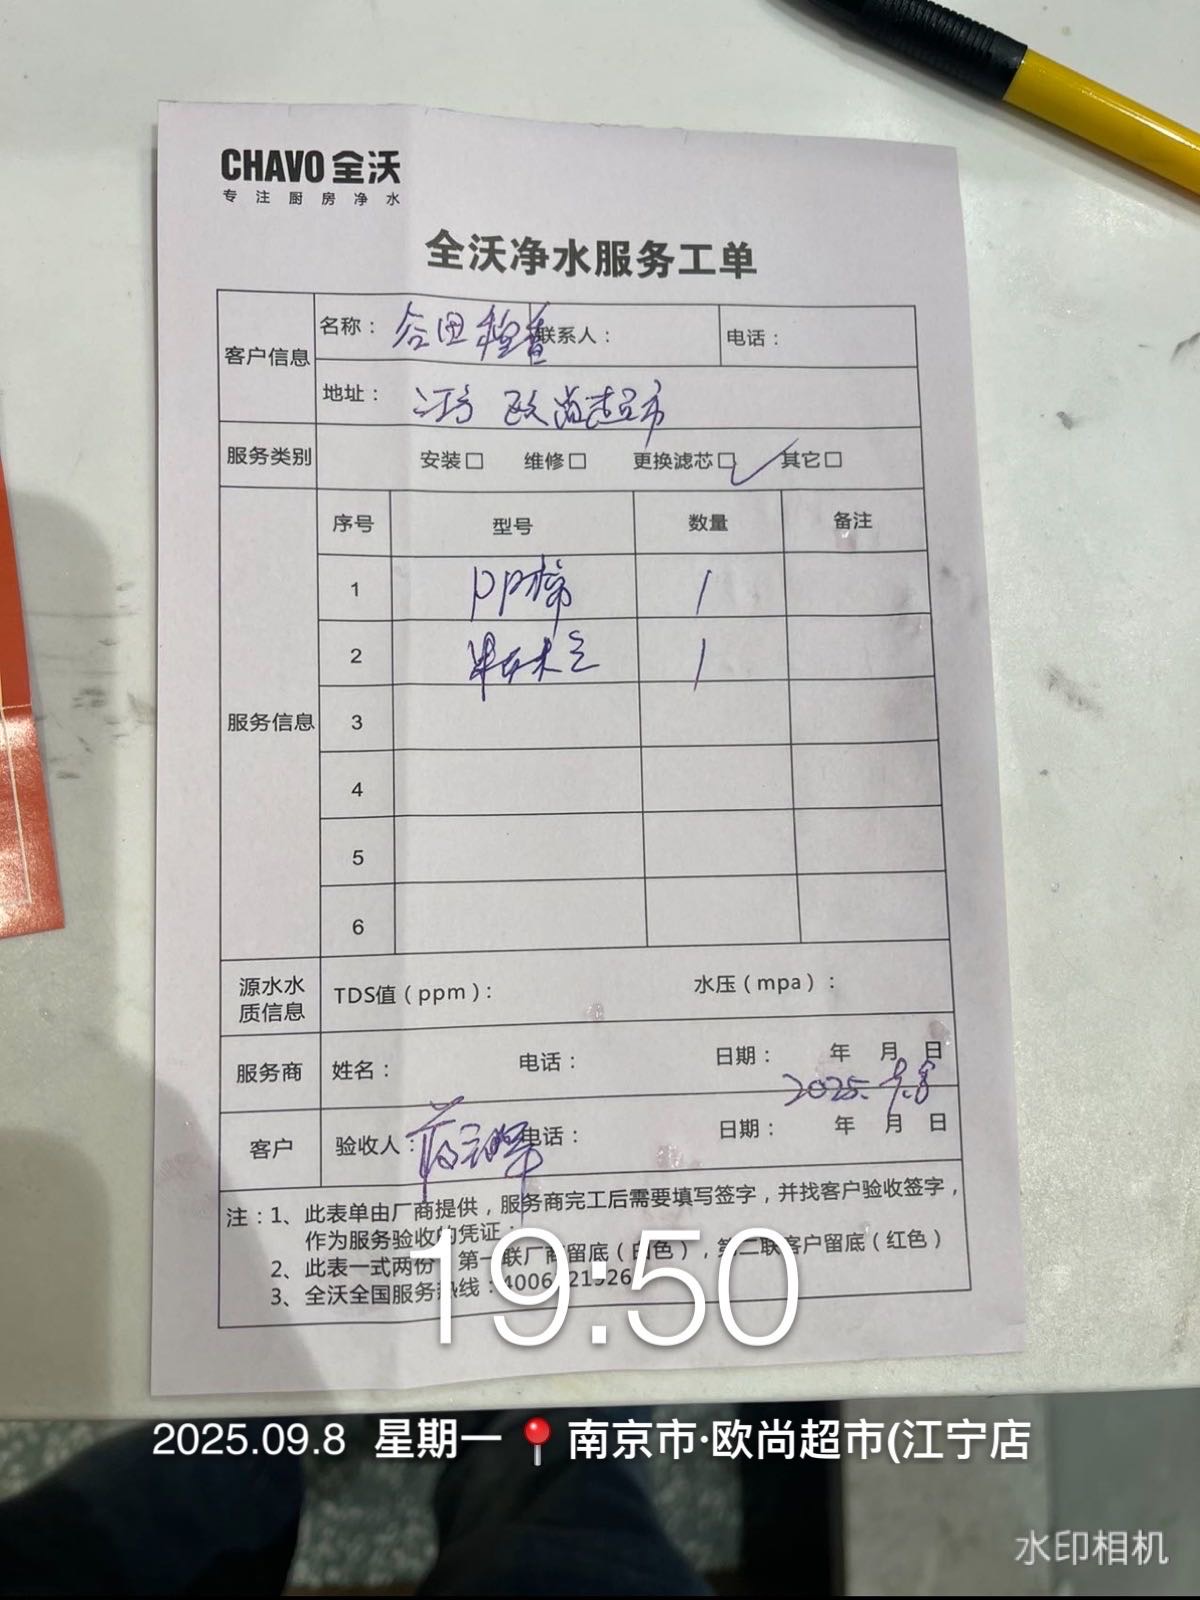 CHAVO 全沃
专注厨房净水
全沃净水服务工单
客户信息 名称： 谷田稻香 联系人： 电话：
地址： 江宁 欧尚超市
服务类别 安装□ 维修□ 更换滤芯□ ✓ 其它□
服务信息 序号 型号 数量 备注
1 PP棉 1
2 1
3
4
5
6
源水水质信息 TDS值（ppm）： 水压（mpa）：
服务商 姓名： 电话： 日期： 年 月 日
2025. 9.8
客户 验收人： 电话： 日期： 年 月 日
注：1、此表单由厂商提供，服务商完工后需要填写签字，并找客户验收签字，
作为服务验收的凭证；
2、此表一式两份，第一联厂商留底（白色），第二联客户留底（红色）
3、全沃全国服务热线：
19:50
2025.09.8 星期一 📍南京市·欧尚超市(江宁店
水印相机